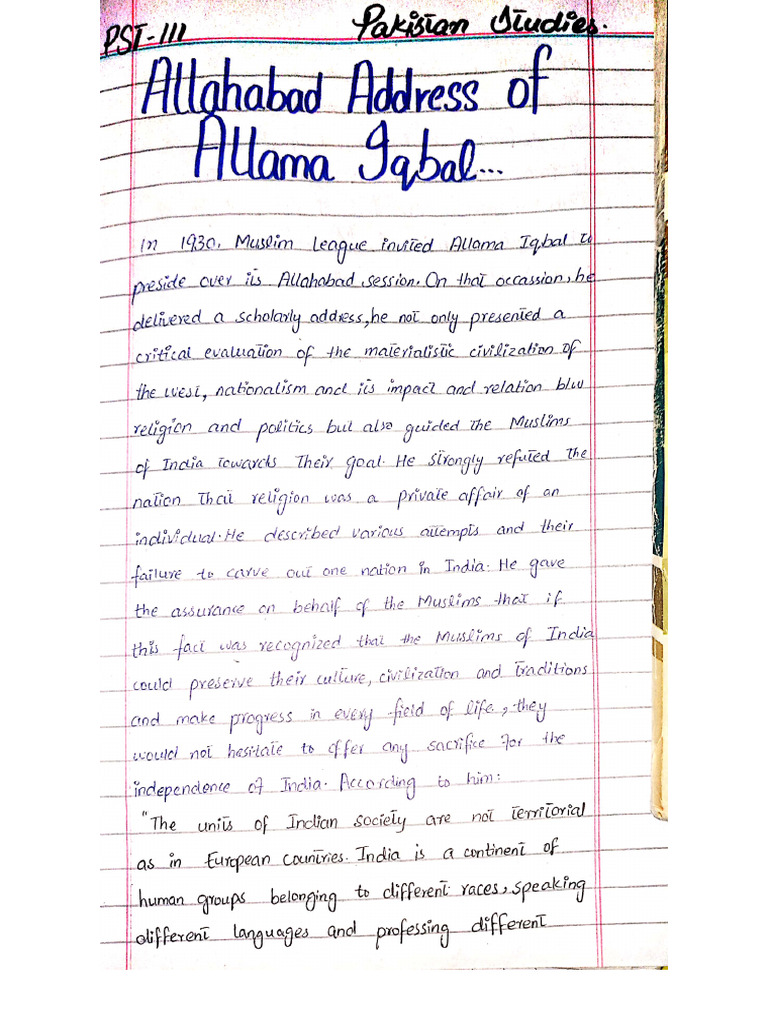 PST-111 Pakistan Studies.
Allahabad Address of
Allama Iqbal...
In 1930, Muslim League invited Allama Iqbal to
preside over its Allahabad session. On that occassion, he
delivered a scholarly address, he not only presented a
critical evaluation of the materialistic civilization of
the west, nationalism and its impact and relation b/w
religion and politics but also guided the Muslims
of India towards their goal. He strongly refuted the
nation that religion was a private affair of an
individual. He described various attempts and their
failure to carve out one nation in India. He gave
the assurance on behalf of the Muslims that if
this fact was recognized that the Muslims of India
could preserve their culture, civilization and traditions
and make progress in every field of life, they
would not hesitate to offer any sacrifice for the
independence of India. According to him:
"The units of Indian society are not territorial
as in European countries. India is a continent of
human groups belonging to different races, speaking
different languages and professing different